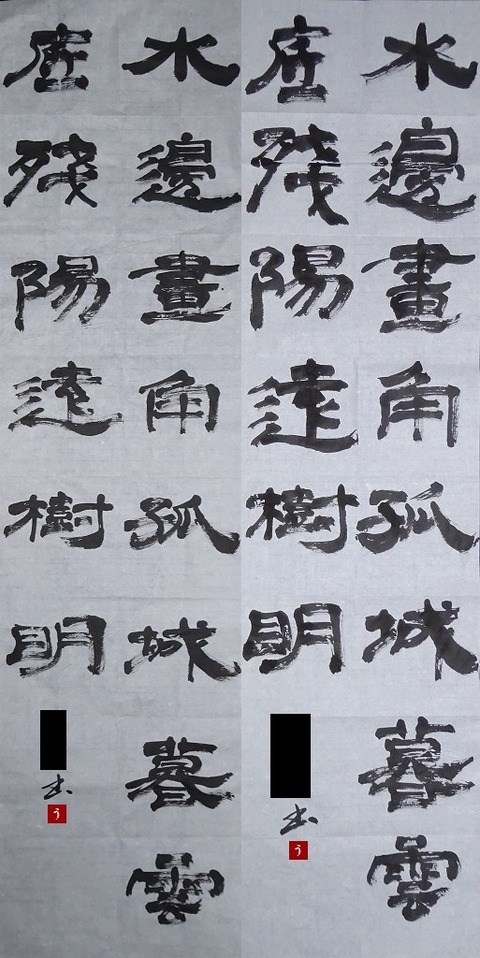 水邊畫角孤城暮雲
底殘陽遠樹明
書
う
水邊畫角孤城暮雲
底殘陽遠樹明
書
う